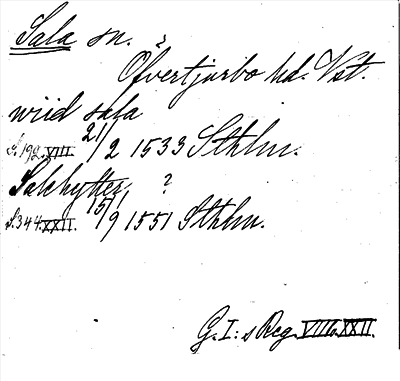 Sala sn.
Öfvertjurbo hd. Vst.
wiid sala
S. 192. VIII. 21/2 1533 Sthlm.
Salehytter, ?
S. 344. XXII. 15/9 1551 Sthlm.
G. I:s Reg. VIII o. XXII.